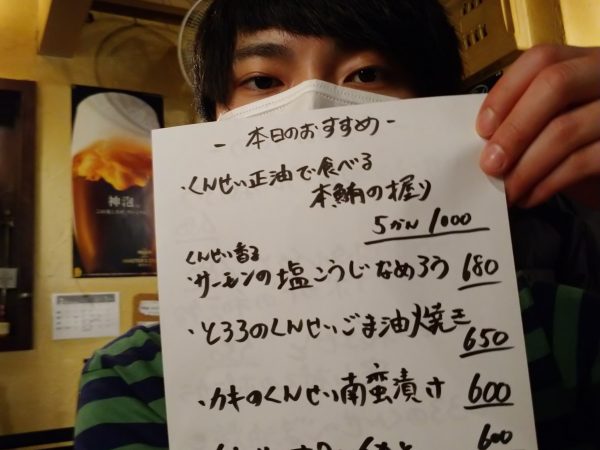 - 本日のおすすめ -
・くんせい正油で食べる
本鮪の握り
5かん/1000
くんせい香る
・サーモンの塩こうじなめろう 680
・とろろのくんせいごま油焼き
650
・カキのくんせい南蛮漬け 600
600
神泡。